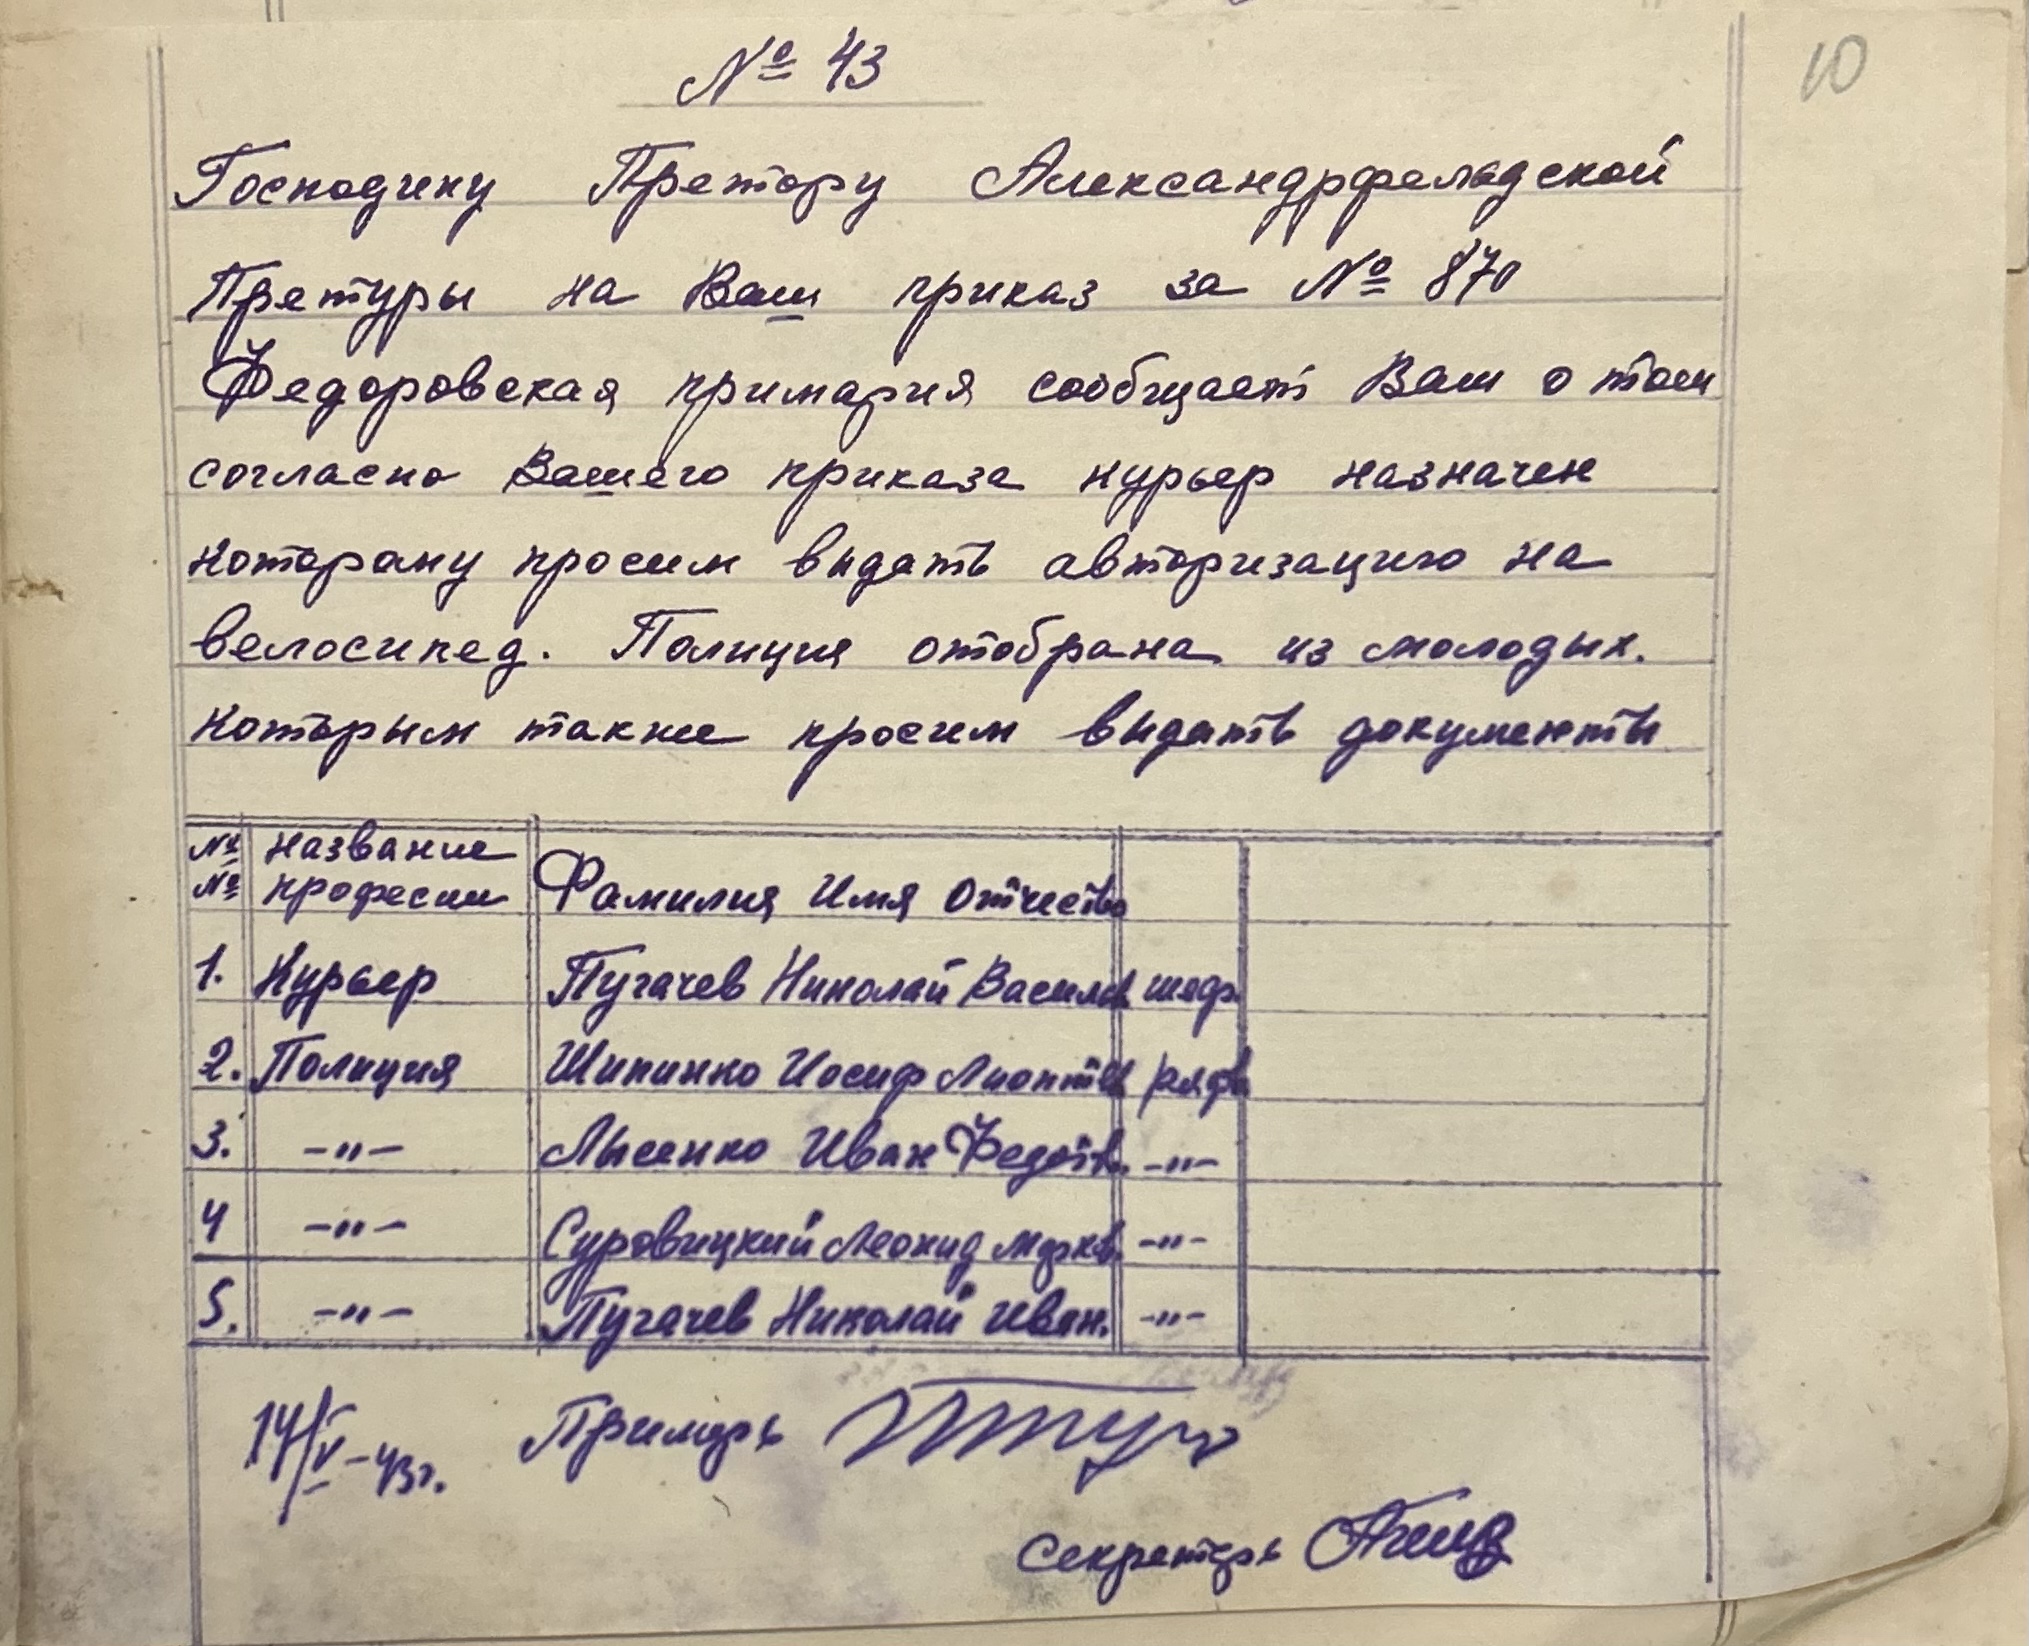 № 43
10
Господину Претору Александрфельдской
Претуры на Ваш приказ за № 870
Федоровская примария сообщает Вам о том
согласно Вашего приказа курьер назначен
которому просим выдать авторизацию на
велосипед. Полиция отобрана из молодых.
которым также просим выдать документы
№ № название професии Фамилия Имя Отчество
1. Курьер Пугачев Николай Васильев
2. Полиция Шипинко Иосиф Лионтев рядв.
3. -"- Лысенко Иван Федотв. -"-
4 -"- Суровицкий Леонид Марков. -"-
5. -"- Пугачев Николай Иван. -"-
14/V-43г. Примарь
Секретарь